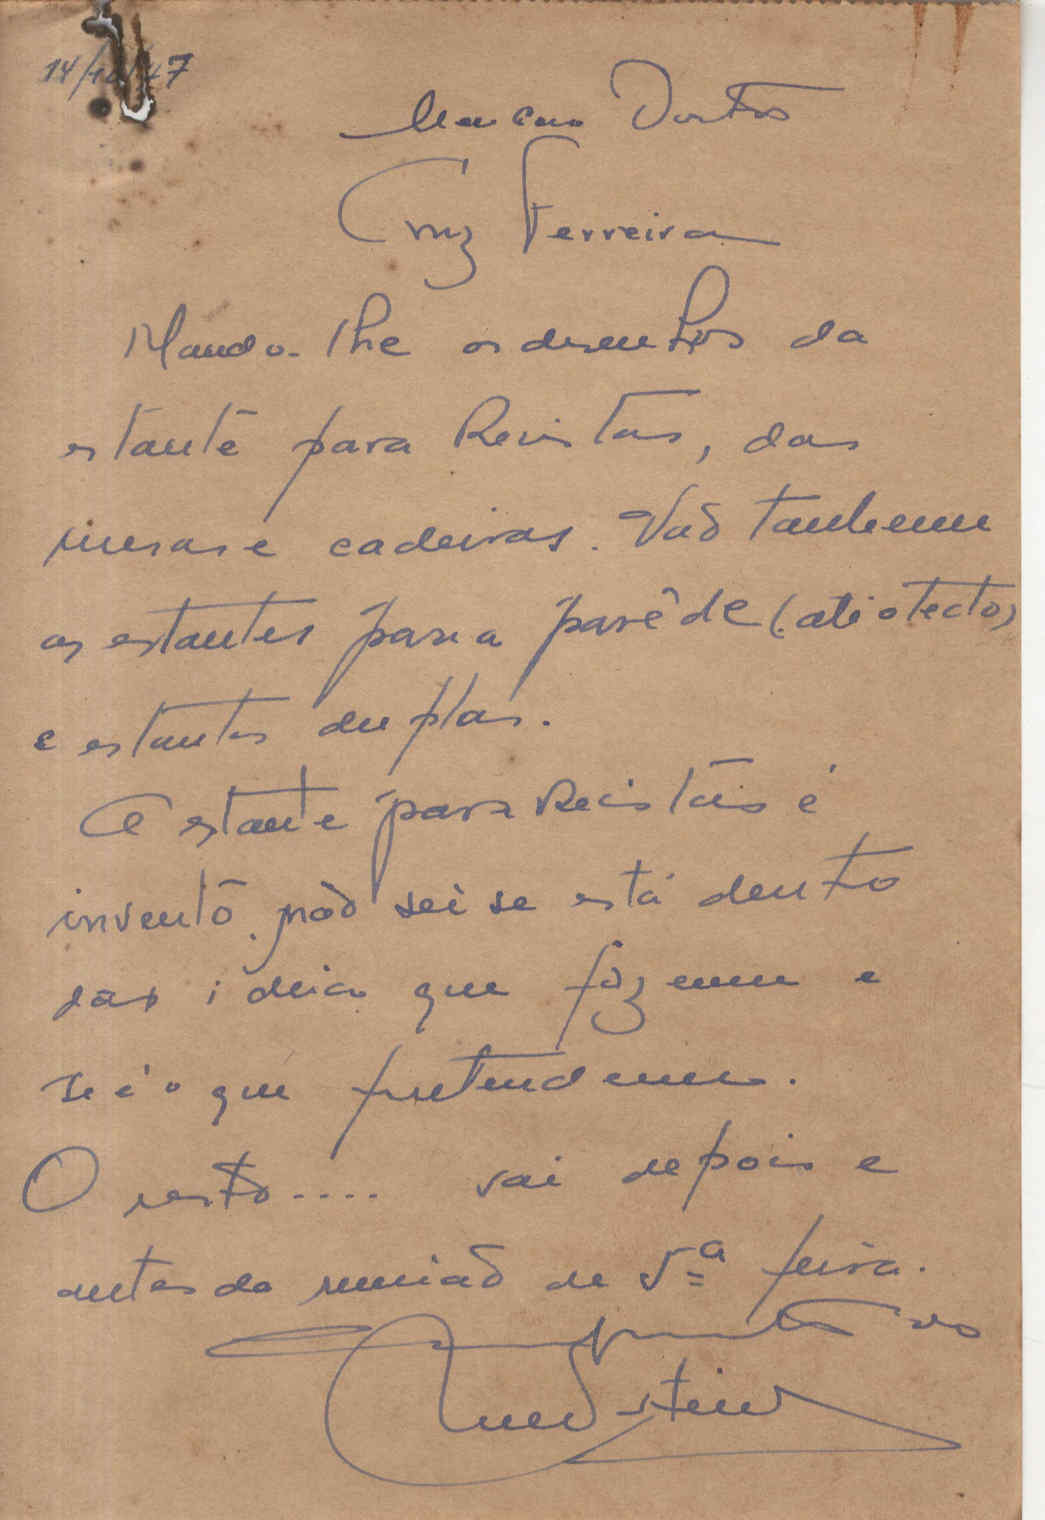 14/10/47
Meu Caro Doutor
Cruz Ferreira
Mando-lhe os desenhos da
estante para Revistas, das
mesas e cadeiras. Vão tambem
as estantes para parêde (até o tecto)
e estantes duplas.
A estante para Revistas é
invento. Não sei se está dentro
das ideia que fazem e
se é o que pretendem.
O resto.... vai depois e
antes da reunião de 5ª feira.